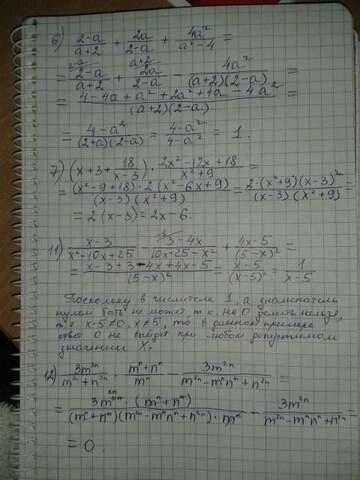 6) (2-a)/(a+2) + 2a/(2-a) + 4a²/(a²-4) =
= (2-a)/(a+2) + 2a/(2-a) - 4a²/((a+2)(2-a)) =
= (4-4a+a²+2a²+4a-4a²)/((a+2)(2-a)) =
= (4-a²)/((2+a)(2-a)) = (4-a²)/(4-a²) = 1.
7) (x+3+18/(x-3)) · (2x²-12x+18)/(x²+9) =
= ((x²-9+18)·2(x²-6x+9))/((x-3)(x²+9)) = (2·(x²+9)(x-3)²)/((x-3)(x²+9)) =
= 2(x-3) = 2x-6.
11) (x-3)/(x²-10x+25) - (3-4x)/(10x-25-x²) + (4x-5)/(5-x)² =
= (x-3+3-4x+4x-5)/(5-x)² = (x-5)/(x-5)² = 1/(x-5)
Поскольку в числителе 1, а знаменатель
нулем быть не может, т.к. на 0 делить нельзя,
т.е. x-5≠0, x≠5, то в данном примере
ответ 0 не выйдет при любом допустимом
значении x.
12) 3m²ⁿ/(m³ⁿ+n³ⁿ) · (mⁿ+nⁿ)/mⁿ - 3m²ⁿ/(m²ⁿ-mⁿnⁿ+n²ⁿ) =
= (3m²ⁿ·(mⁿ+nⁿ))/((mⁿ+nⁿ)(m²ⁿ-mⁿnⁿ+n²ⁿ)·mⁿ) - 3m²ⁿ/(m²ⁿ-mⁿnⁿ+n²ⁿ) =
= 0.